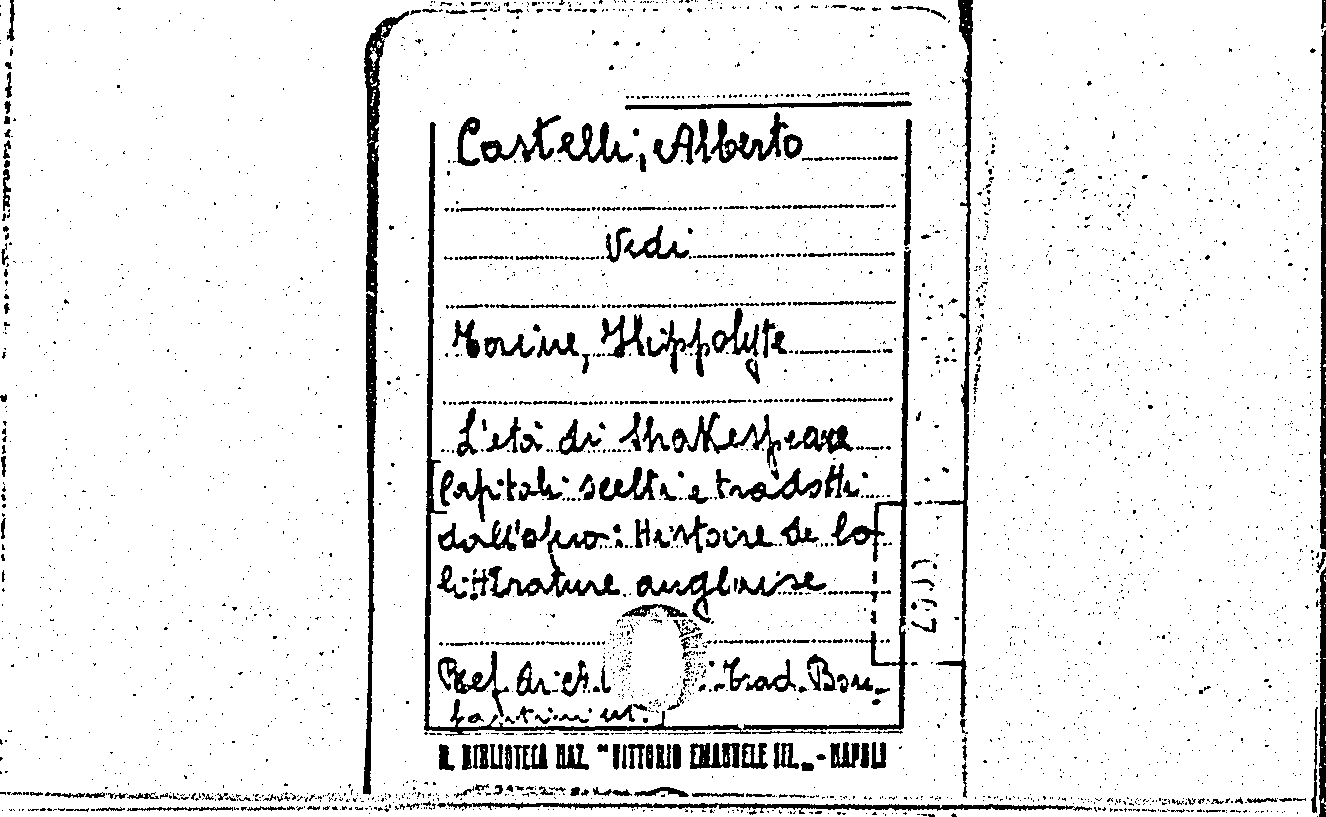 Castelli, Alberto
Vedi
Taine, Hippolyte
L'età di Shakespeare
[Capitoli scelti e tradotti
dall'opera: Histoire de la
littérature anglaise
Pref. di A. Trad. Bon-
R. BIBLIOTECA NAZ. "VITTORIO EMANUELE III" - NAPOLI